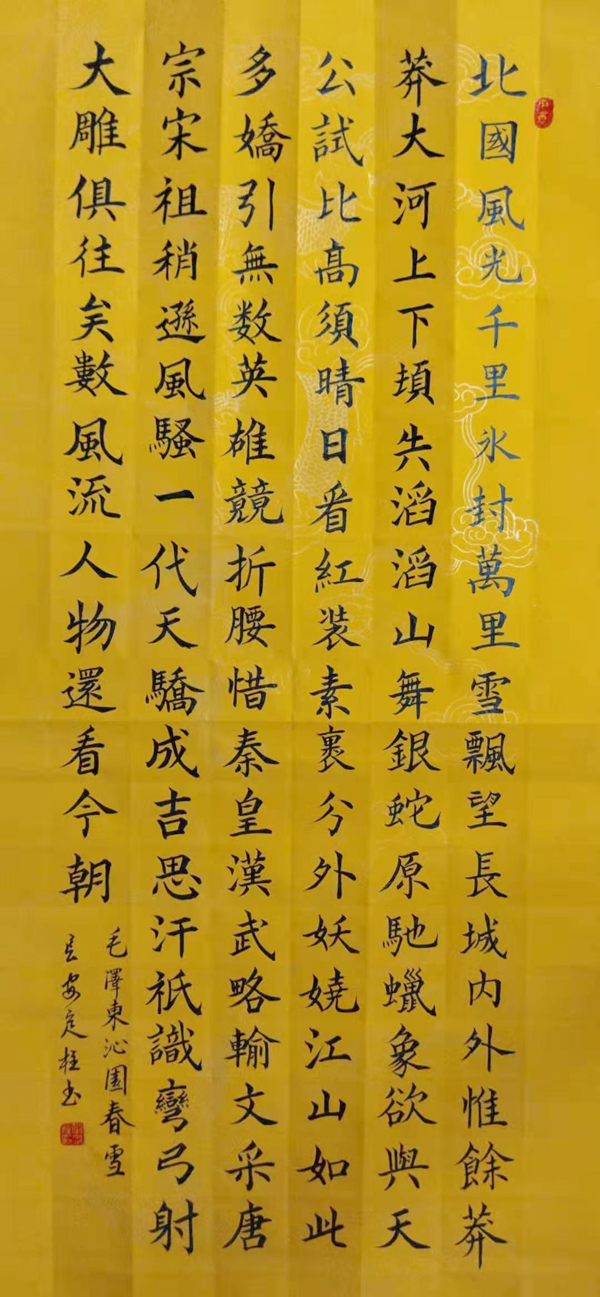 北國風光千里氷封萬里雪飄望長城内外惟餘莽
莽大河上下頓失滔滔山舞銀蛇原馳蠟象欲與天
公試比髙須晴日看紅装素裹分外妖嬈江山如此
多嬌引無数英雄競折腰惜秦皇漢武略輸文采唐
宗宋祖稍遜風騷一代天驕成吉思汗祇識彎弓射
大雕俱往矣數風流人物還看今朝
毛澤東沁園春雪
安定柱书